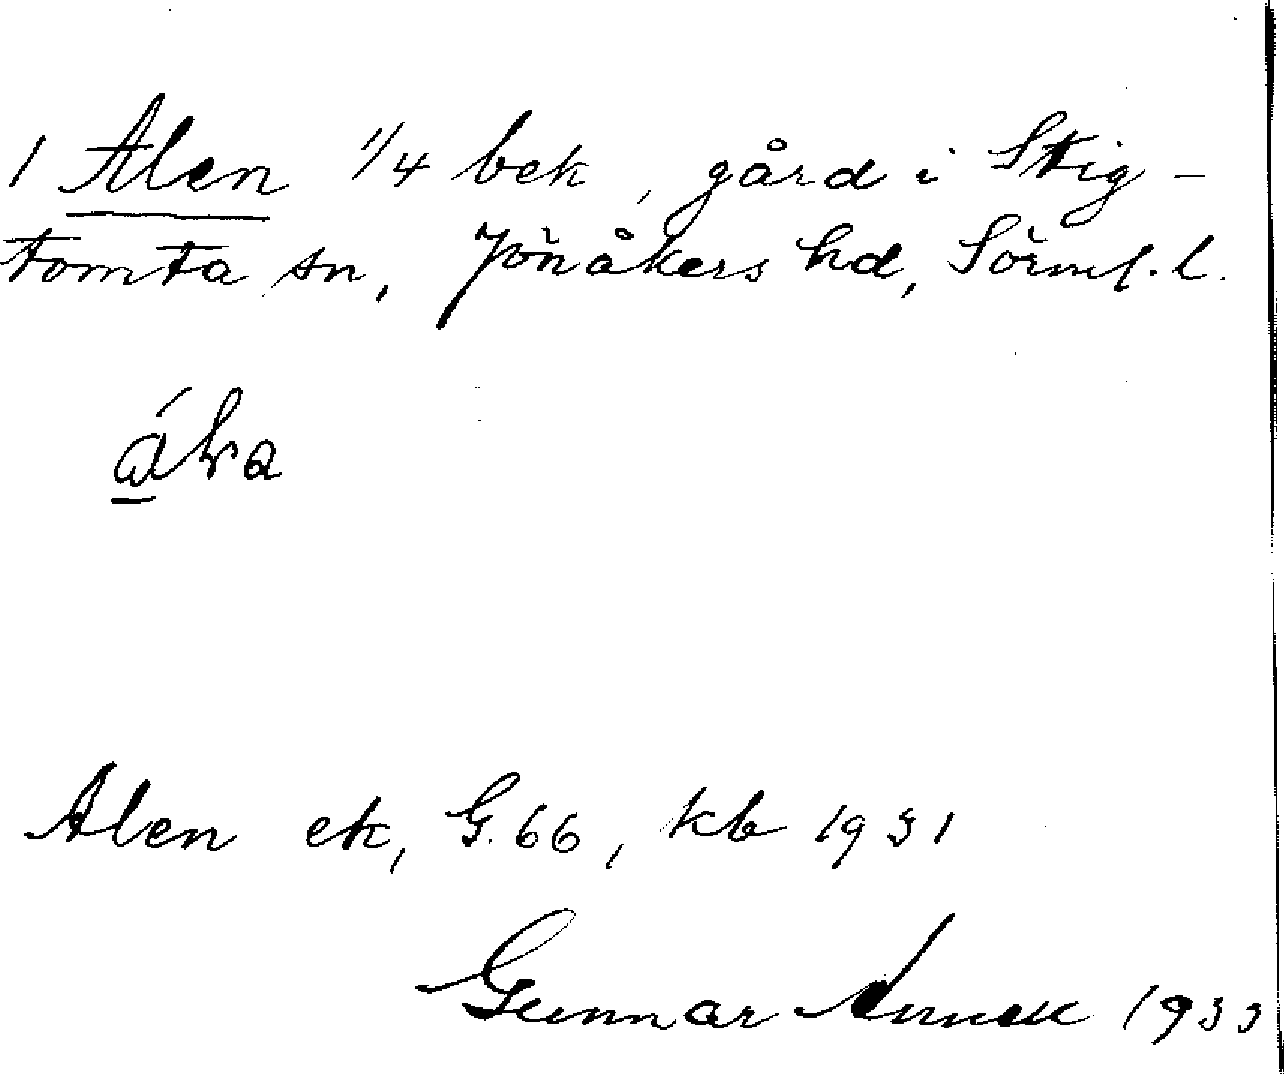 1 Alen 1/4 bek, gård i Stig-
tomta sn, Jönåkers hd, Sörml. l.
Alen ek, G. 66, kb 1931
Gunnar 1933